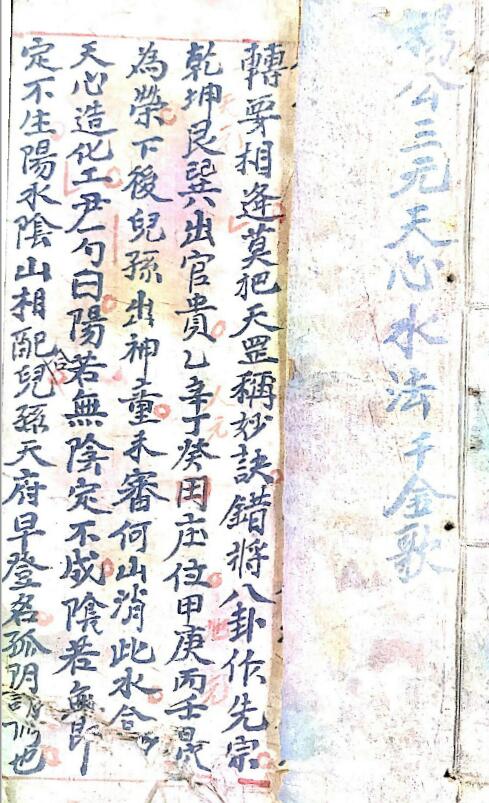 楊公三元天心水法千金歌
轉要相逢莫把天罡稱妙訣錯將八卦作先宗
乾坤艮巽出官貴乙辛丁癸田庄位甲庚丙壬最
為榮下後兒孫出神童未審何山消此水合
天心造化工尹一勺曰陽若無陰定不成陰若無陽
定不生陽水陰山相配合兒孫天府早登名孤陰
人元
地元